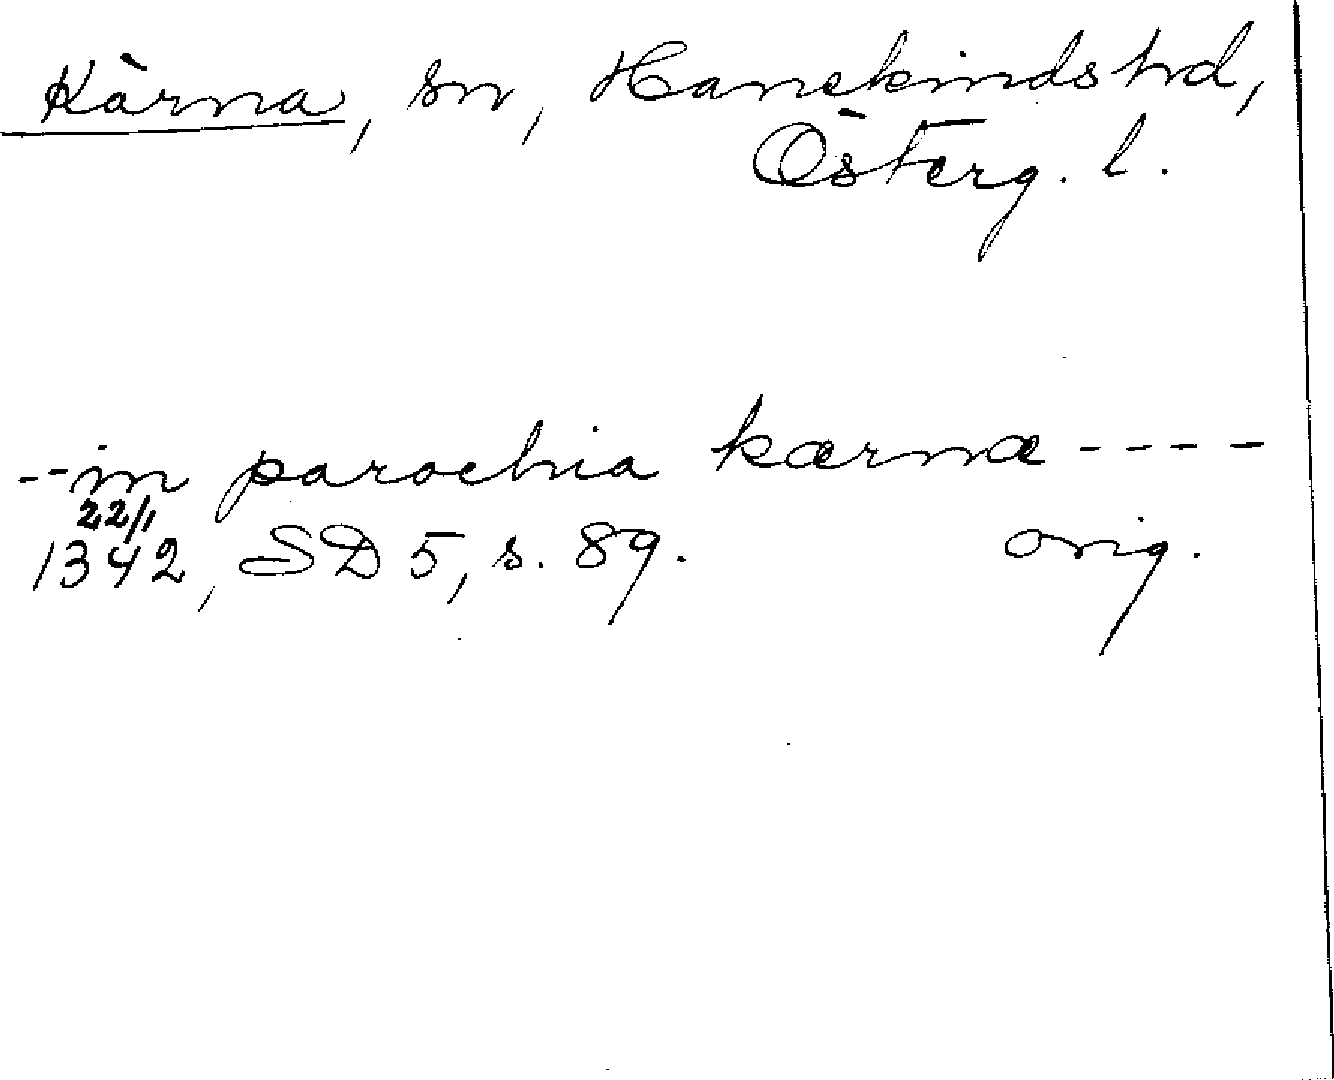 Kärna, sn, Hanekinds hd,
Österg. l.
--in parochia kærnæ ----
22/1
1342, SD 5, s. 89. orig.